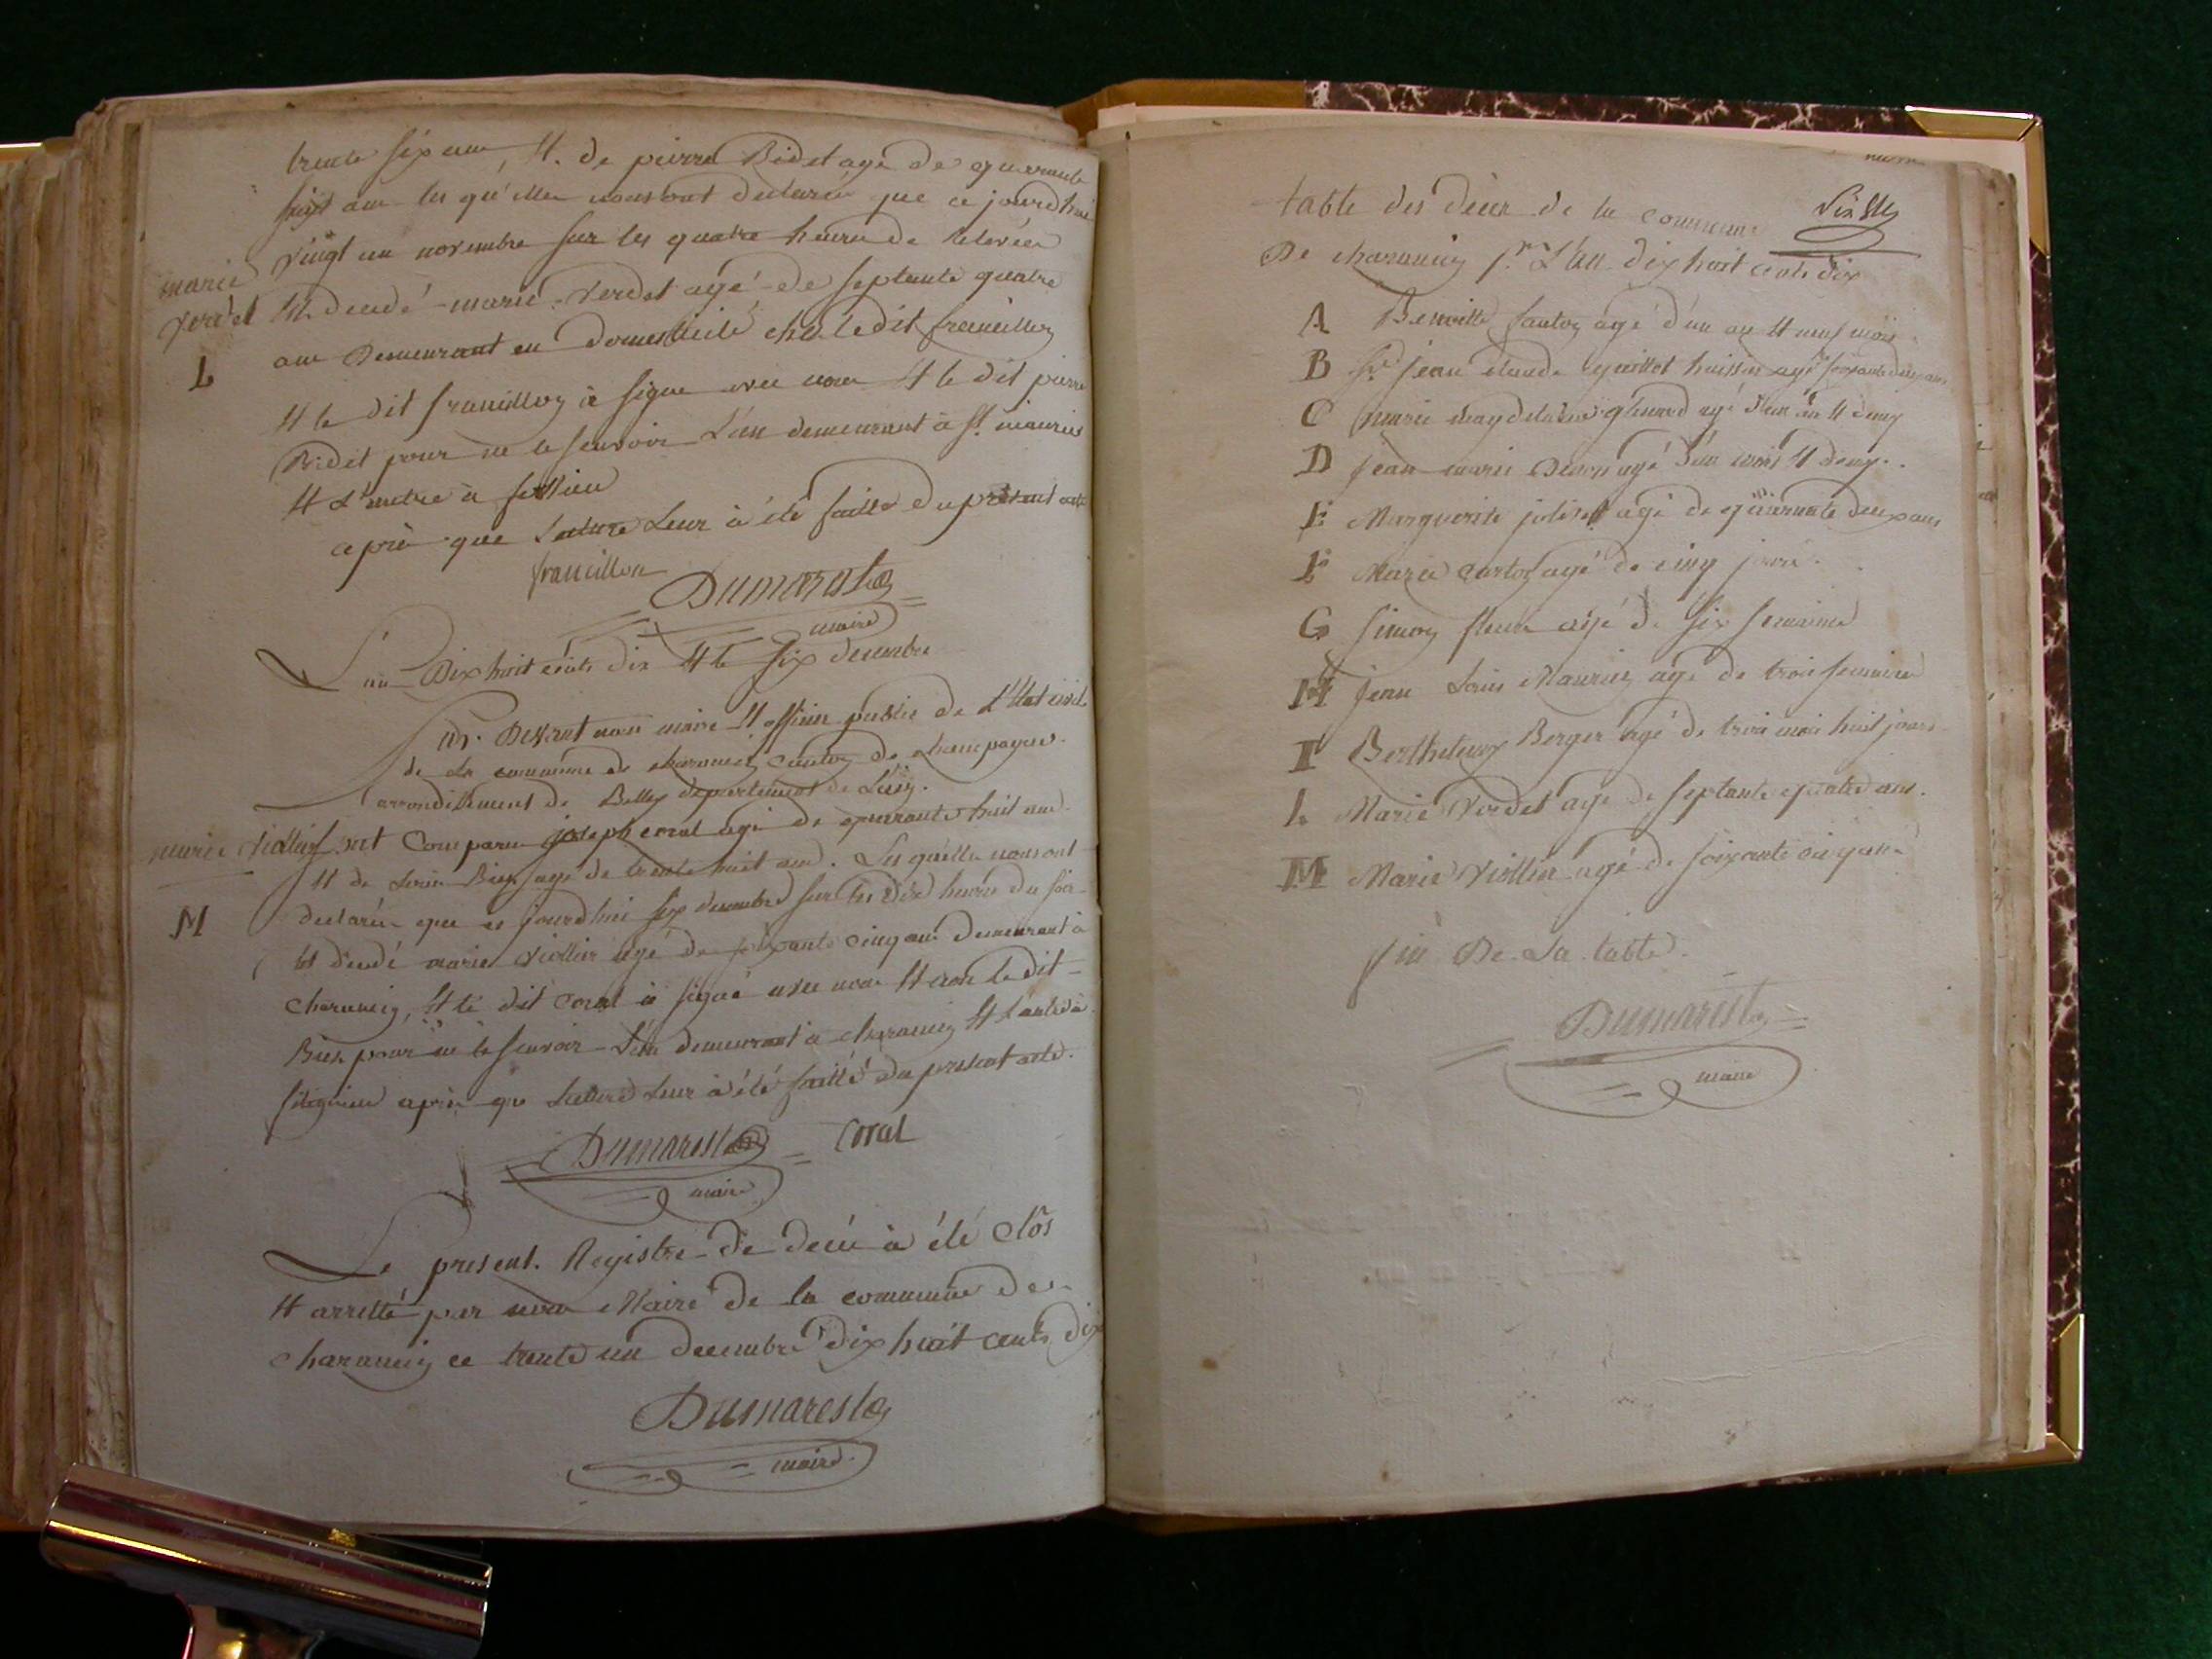 trente six ans, et de pierre Bidet agé de quarante
sept ans les qu'elles nous ont declarés que ce jourdhui
vingt un novembre sur les quatre heures de relevées
marie
verdet
est decedé marie Verdet agé de septante quatre
L
ans Demeurant en domesticité chez le dit francillon
et le dit francillon à signe avec nous et le dit pierre
Bidet pour ne le scavoir L'un demeurant à St. maurice
et L'autre à
après que Lecture Leur à été faitte du présent acte
francillon
Dumarest
maire
L'an Dix huit cents dix et le six decembre
Par Devant nous maire et officier public de L'Etat civil
de La commune de charancin canton de champagne
arrondissement de Belley département de L'ain.
marie viollin
sont Comparu joseph coral agé de quarante huit ans
et de Louis Bien agé de trente huit ans. Les quelles nous ont
M
declarés que ce jourdhui six decembre sur les dix heures du soir
est decedé marie viollin agé de soixante cinq ans demeurant à
charancin, et le dit coral à signé avec nous et non le dit
Bien pour ne le scavoir L'un demeurant à charancin et L'autre à
après que Lecture Leur à été faitte du present acte.
Dumarest
Coral
maire
Le present Registre de decés à été Clôs
et arretté par nous Maire de la commune de
charancin ce trente un decembre dix huit cents dix
Dumarest
maire
Sixte
table des décés de la commune
De charancin pr. L'an dix huit cents dix
A Benoitte santon agé d'un an et neuf mois
B Sr. jean claude huissier agé soixante deux ans
C marie magdelaine agé d'un an et demy
D jean marie agé d'un mois et demy.
E Marguerite agé de quarante deux ans
F Marie agé de cinq jours.
G Simon agé de six semaines
H jean Louis Maurin agé de trois semaines
I Berthelemy Berger agé de trois mois huit jours
L Marie Verdet agé de septante quatre ans.
M Marie Viollin agé de soixante cinq ans
fin De La table.
Dumarest
maire